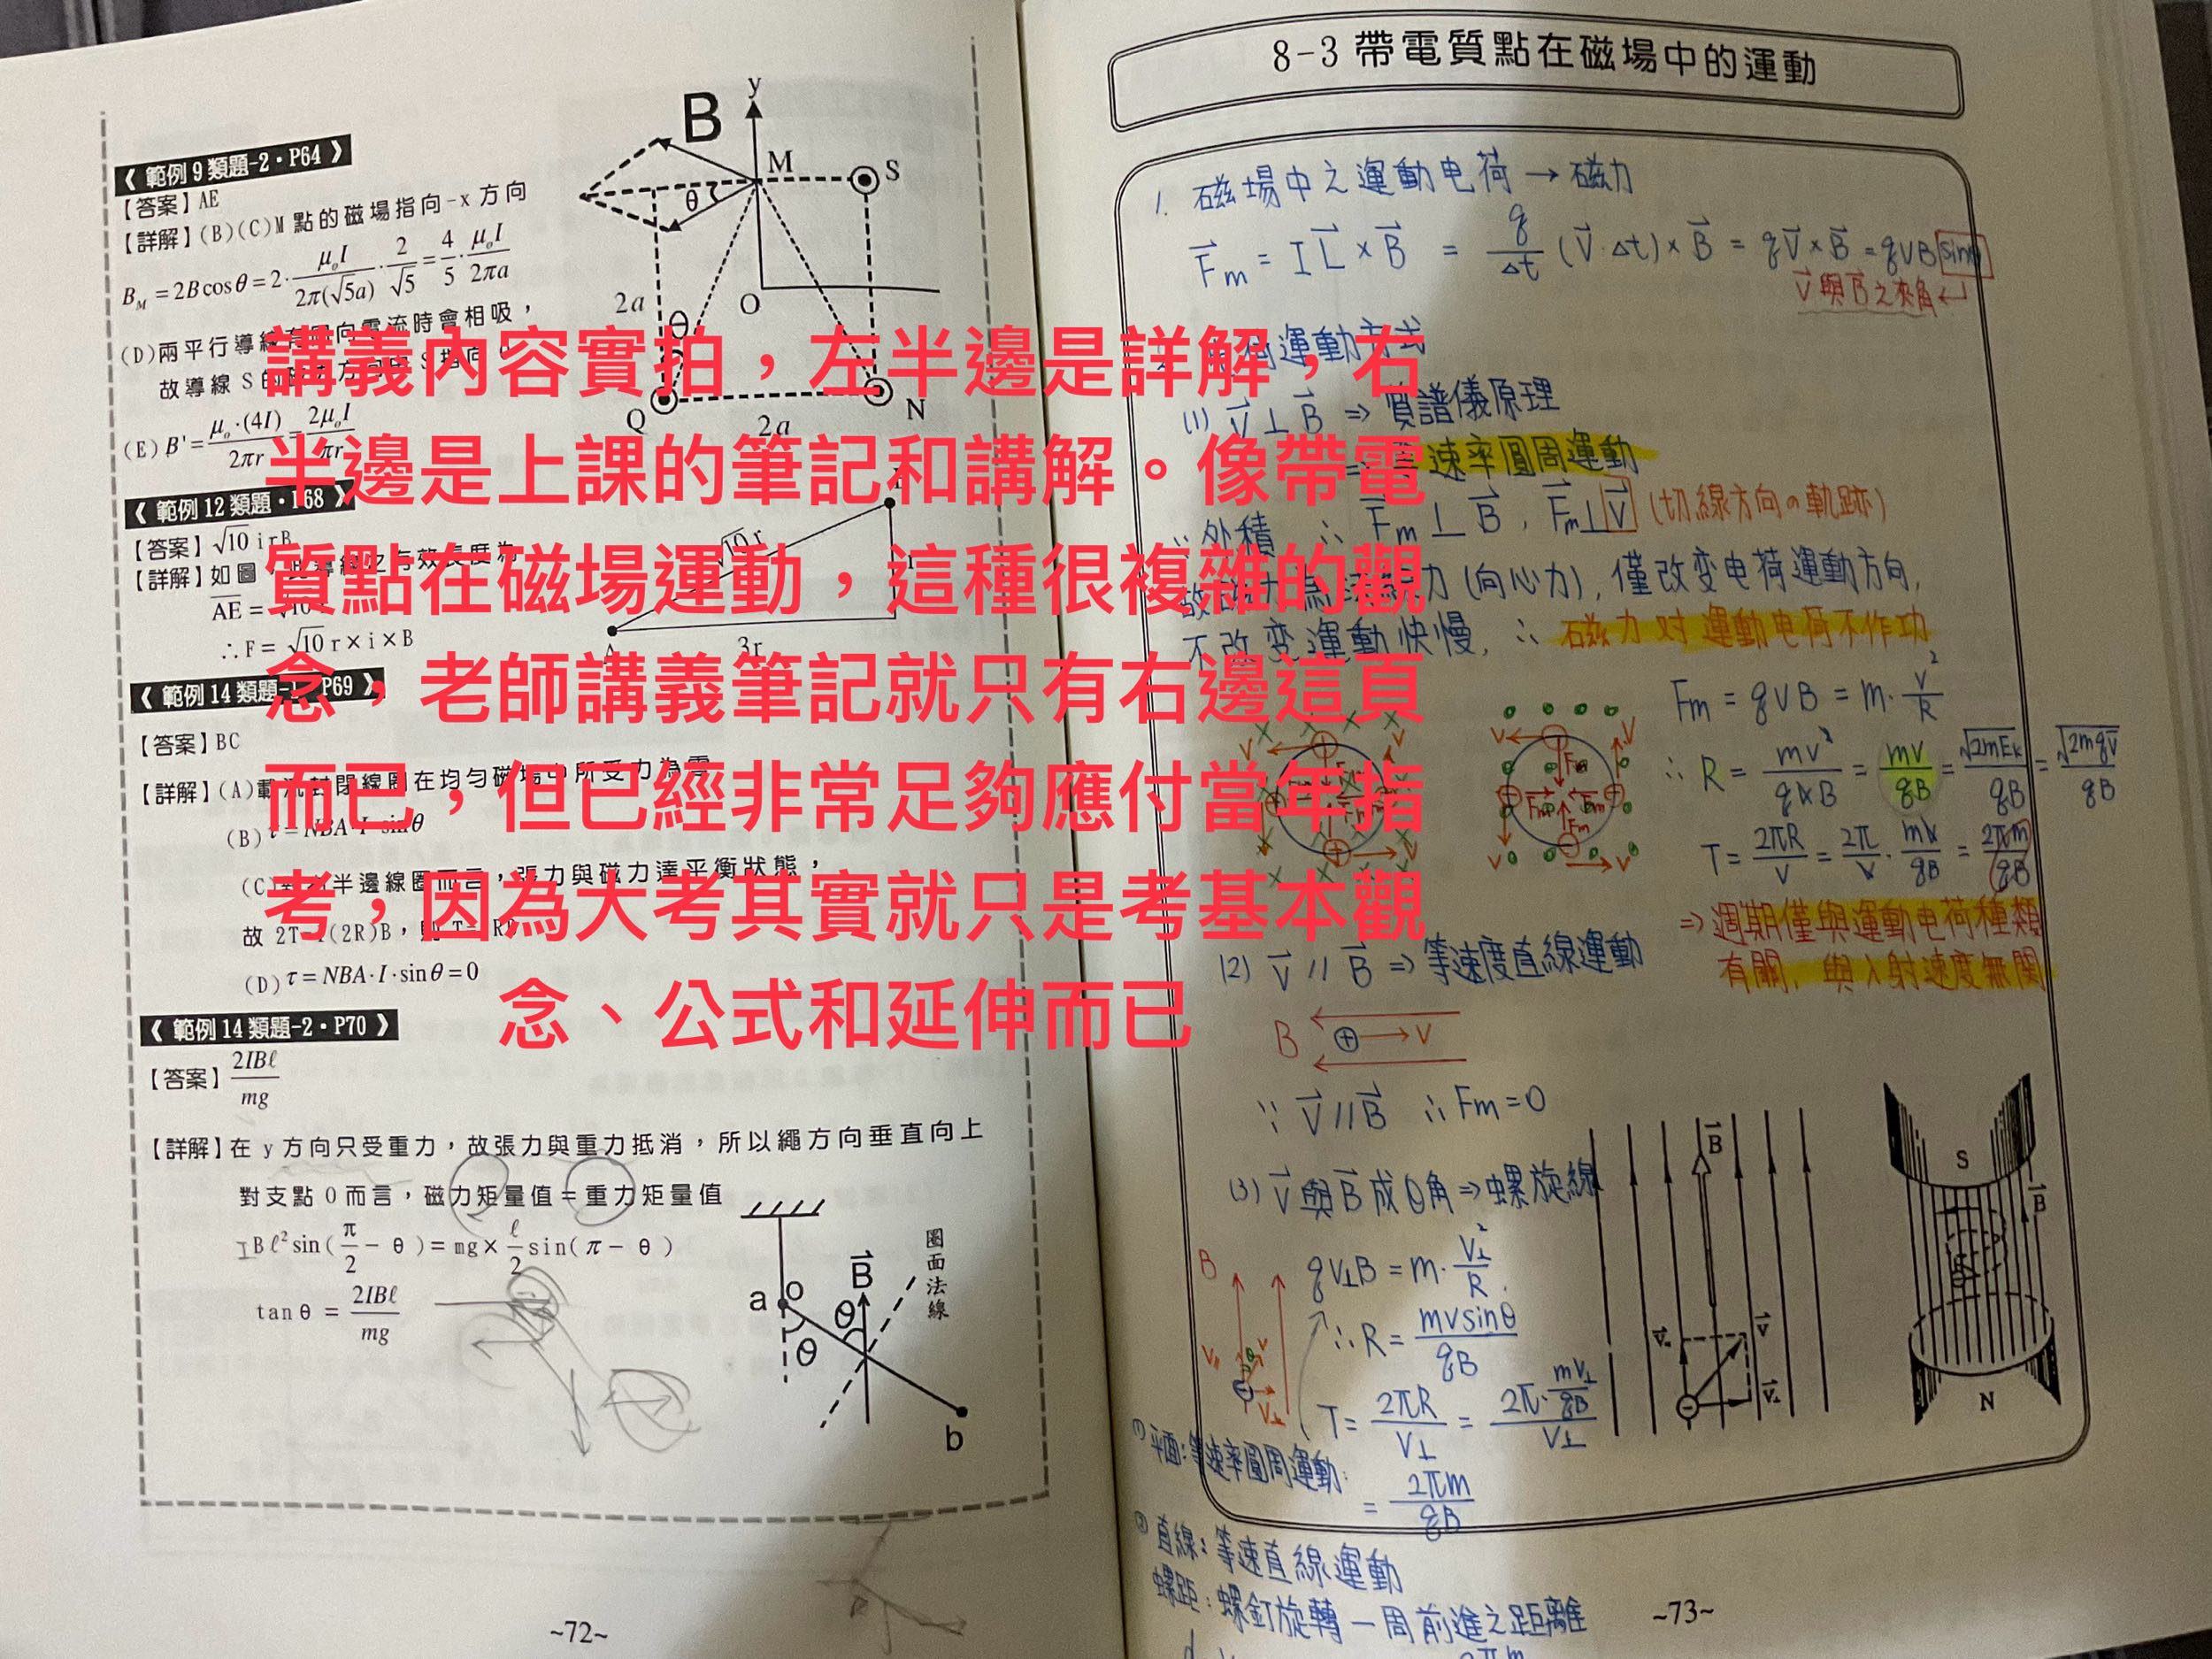 《 範例 9 類題-2・P64 》
【答案】AE
【詳解】(B)(C)M 點的磁場指向-x 方向
B_M = 2B cosθ = 2·μ₀I/2π(√5a)·2/√5 = 4/5·μ₀I/2πa
(D)兩平行導線有同向電流時會相吸，
故導線 S 的
(E) B' = μ₀·(4I)/2πr = 2μ₀I/πr
y
B
M
S
θ
O
2a
θ
Q
2a
N
《 範例 12 類題・P68 》
【答案】√10 irB
【詳解】如圖，此導線之有效長度為
AE = √10 r
∴F = √10 r × i × B
√10 r
A
3r
《 範例 14 類題-1・P69 》
【答案】BC
【詳解】(A)載流封閉線圈在均勻磁場中所受力為零
(B) τ = NBA·I·sinθ
(C)對右半邊線圈而言，張力與磁力達平衡狀態，
故 2T=I(2R)B，則 T=IRB
(D) τ = NBA·I·sinθ = 0
《 範例 14 類題-2・P70 》
【答案】2IBℓ/mg
【詳解】在 y 方向只受重力，故張力與重力抵消，所以繩方向垂直向上
對支點 O 而言，磁力矩量值 = 重力矩量值
IBℓ² sin(π/2 − θ) = mg × ℓ/2 sin(π − θ)
tanθ = 2IBℓ/mg
a
O
B
θ
θ
圈面法線
b
~72~
講義內容實拍，左半邊是詳解，右
半邊是上課的筆記和講解。像帶電
質點在磁場運動，這種很複雜的觀
念，老師講義筆記就只有右邊這頁
而已，但已經非常足夠應付當年指
考，因為大考其實就只是考基本觀
念、公式和延伸而已
8-3 帶電質點在磁場中的運動
1. 磁場中之運動电荷 → 磁力
Fm = IL × B = q/Δt (V·Δt) × B = qV × B = qVB sinθ
V與B之夾角
电荷運動方式
(1) V ⊥ B ⇒ 質譜儀原理
⇒ 等速率圓周運動
∵ 外積 ∴ Fm ⊥ B, Fm ⊥ V (切線方向の軌跡)
故磁力為法線力 (向心力), 僅改变电荷運動方向,
不改变運動快慢, ∴ 磁力对運動电荷不作功
Fm = qVB = m·V²/R
∴ R = mv²/qVB = mv/qB = √2mEk/qB = √2mqV/qB
T = 2πR/V = 2π/V · mV/qB = 2πm/qB
⇒ 週期僅與運動电荷種類
有關, 與入射速度無関
(2) V // B ⇒ 等速度直線運動
B
V
∵ V // B ∴ Fm = 0
(3) V與B成θ角 ⇒ 螺旋線
qV⊥B = m·V⊥²/R
∴ R = mvsinθ/qB
T = 2πR/V⊥ = 2π·mV⊥/qB/V⊥
= 2πm/qB
B
S
B
N
① 平面: 等速率圓周運動
② 直線: 等速直線運動
螺距: 螺釘旋轉一周前進之距離
~73~